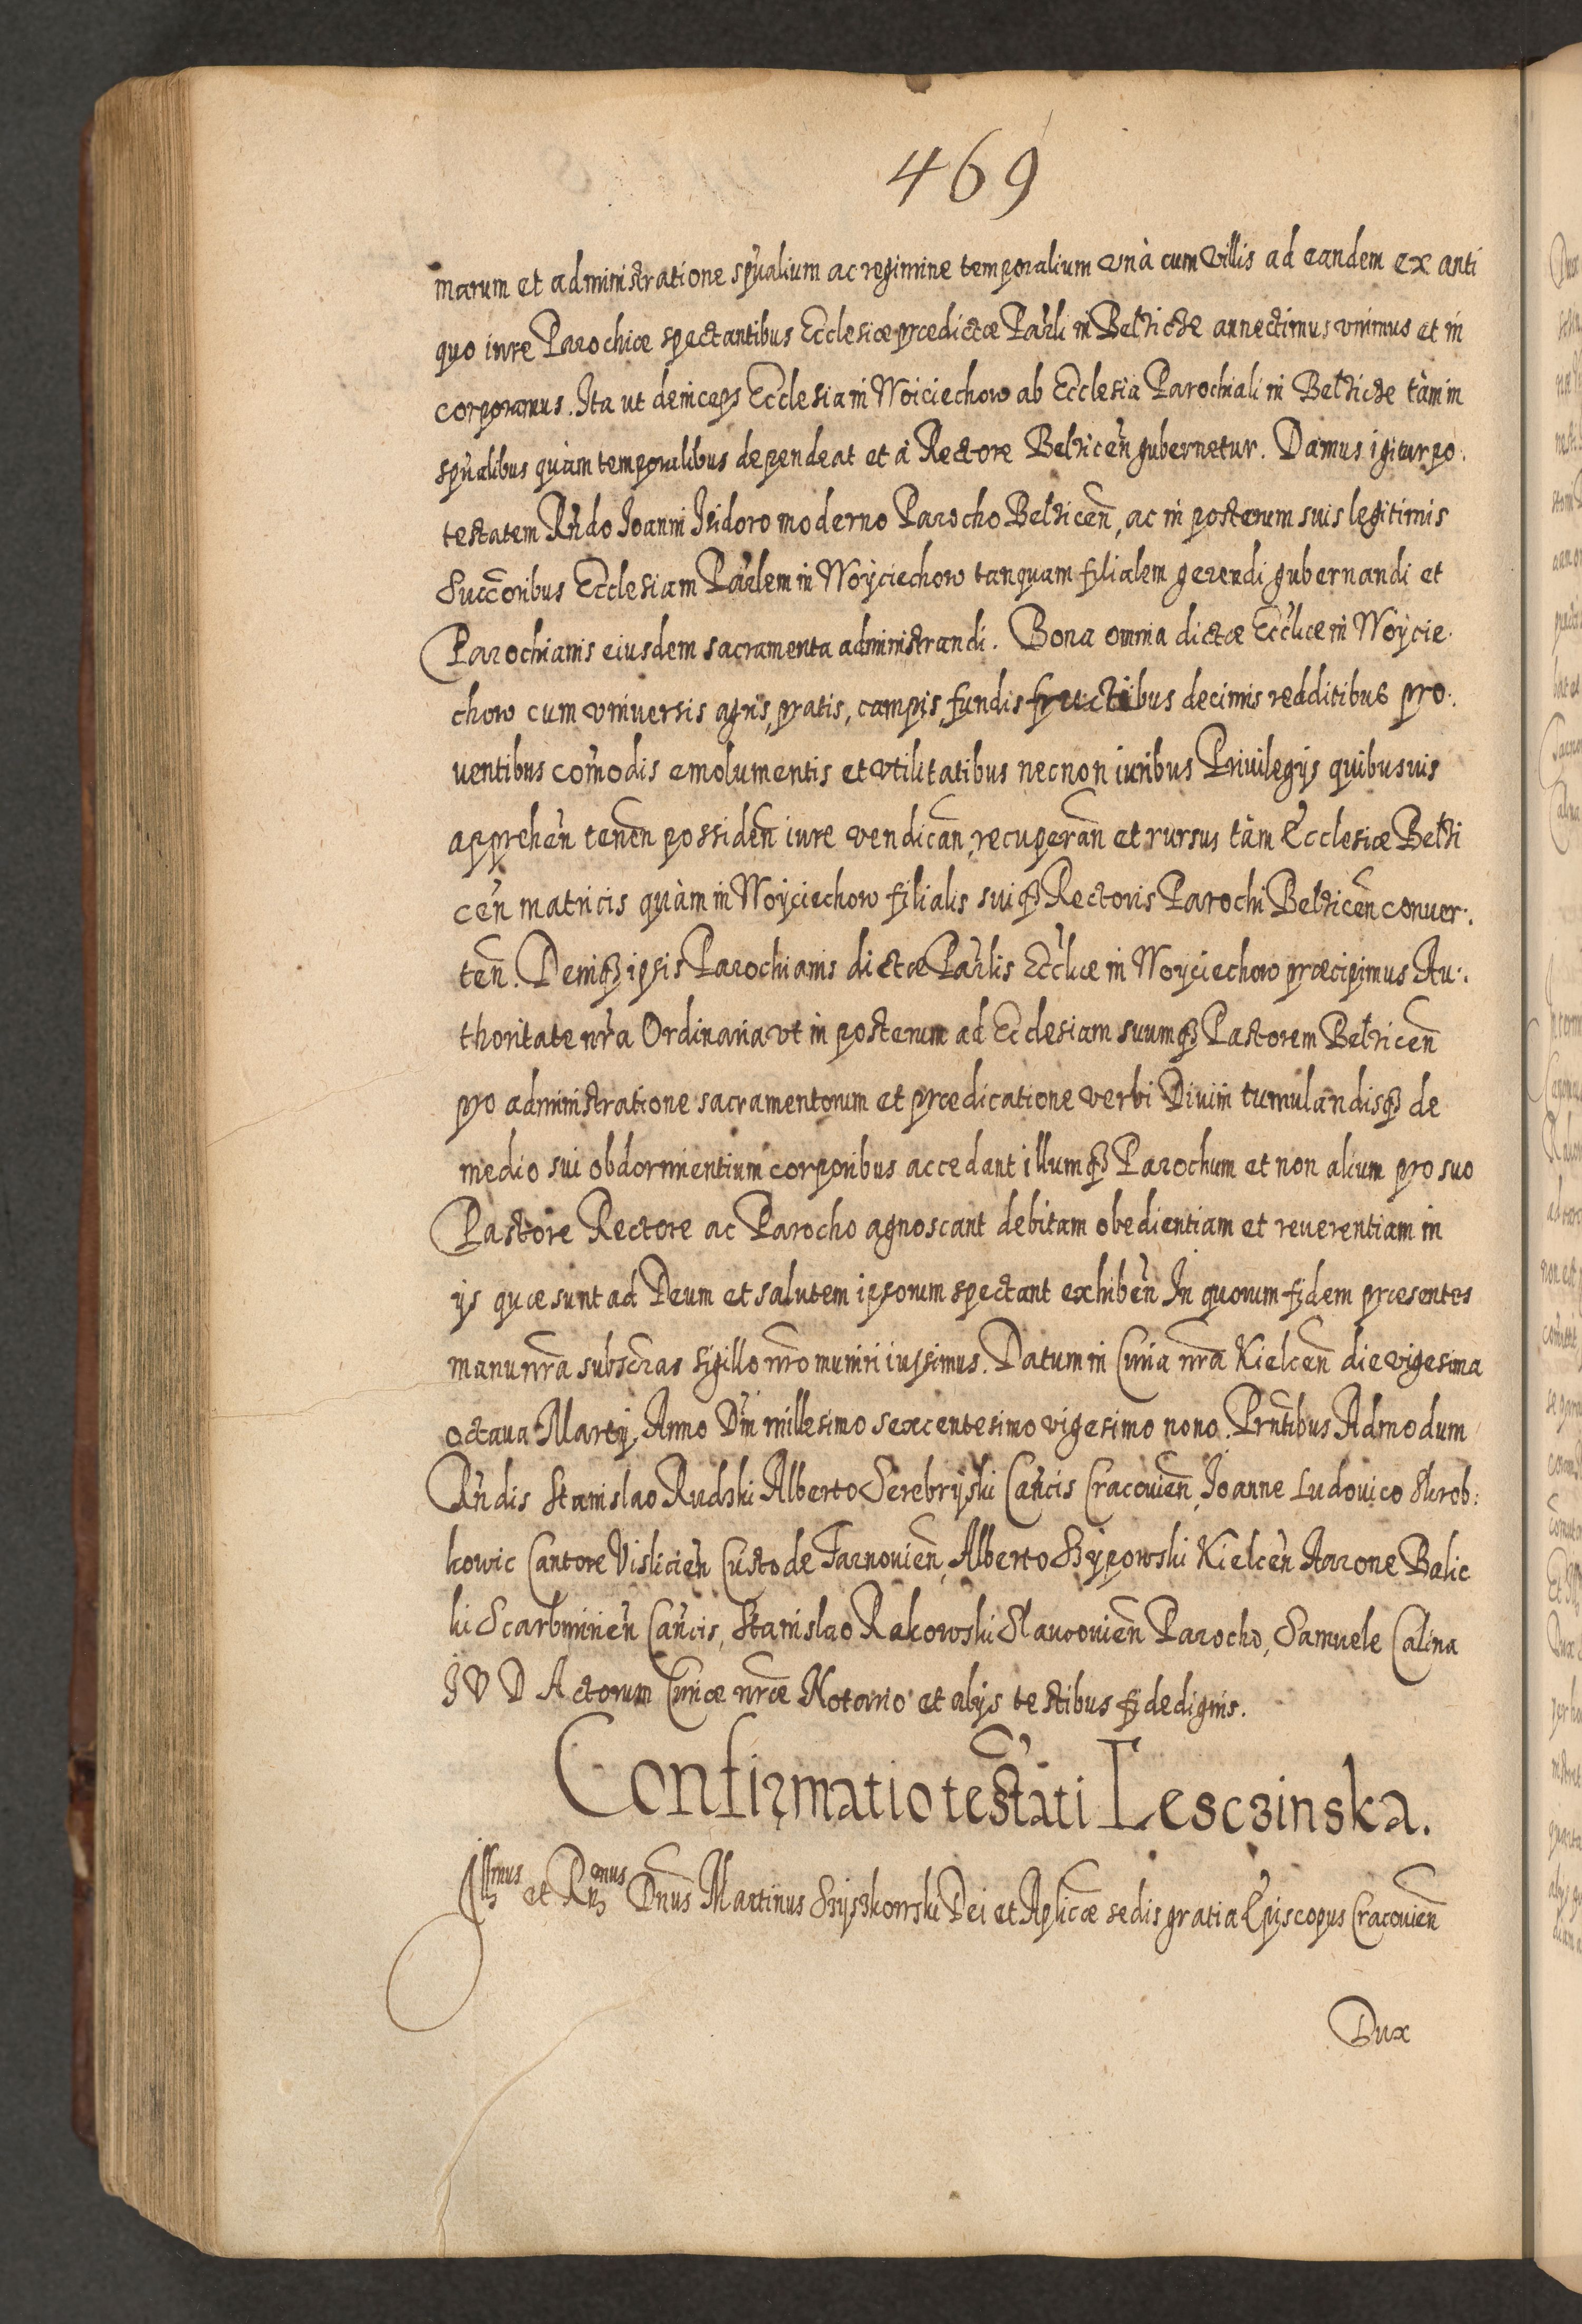 469
marum et administratione sp̃ualium ac regimine temporalium vnà cum villis ad eandem ex anti
quo iure Parochiæ spectantibus Ecclesiæ prædictæ Par̃li in Belzicze annectimus vnimus et in
corporamus. Ita ut deinceps Ecclesia in Woiciechow ab Ecclesia Parochiali in Belzicze tàm in
sp̃ualibus quàm temporalibus dependeat et à Rectore Belziceñ gubernetur. Damus igitur po.
testatem Rñdo Joanni Isidoro moderno Parocho Belziceñ, ac in posterum suis legitimis
Succ̃oribus Ecclesiam Par̃lem in Woÿciechow tanquam filialem gerendi gubernandi et
Parochianis eiusdem sacramenta administrandi. Bona omnia dictæ Ecc̃liæ in Woÿcie.
chow cum vniuersis agris, pratis, campis, fundis fructibus decimis redditibus pro.
ventibus com̃odis emolumentis et vtilitatibus necnon iuribus Priuilegÿs quibusuis
apprehen̄ tenen̄ possiden̄ iure vendican̄, recuperan̄ et rursus tàm Ecclesiæ Belzi
ceñ matricis quàm in Woÿciechow filialis suiq̃ Rectoris Parochi Belziceñ conuer.
ten̄. Deniq̃ ipsis Parochianis dictæ Par̃lis Ecc̃liæ in Woyciechow præcipimus Au.
thoritate nr̃a Ordinaria vt in posterum ad Ecclesiam suumq̃ Pastorem Belziceñ
pro administratione sacramentorum et prædicatione verbi Diuini tumulandisq̃ de
medio sui obdormientium corporibus accedant illumq̃ Parochum et non alium pro suo
Pastore Rectore ac Parocho agnoscant debitam obedientiam et reuerentiam in
ÿs quæ sunt ad Deum et salutem ipsorum spectant exhiben̄ In quorum fidem præsentes
manu nr̃a subscr̃as sigillo nr̃o muniri iussimus. Datum in Curia nr̃a Kielceñ die vigesima
octaua Martÿ, Anno Dñi millesimo sexcentesimo vigesimo nono. Prñtibus Admodum
Rñdis Stanislao Rudzki Alberto Serebrÿski Cañcis Cracouieñ, Joanne Ludouico Skrob:
kowic Cantore Vislicieñ Custode Tarnouieñ, Alberto Szÿpowski Kielceñ Aarone Balic
ki Scarbimirieñ Cañcis, Stanislao Rakowski Slaucouieñ Parocho, Samuele Calina
J V D Actorum Curiæ nr̃æ Notario et alÿs testibus fide dignis.
Confirmatio testãti Lesczinska.
Illmus et Rndmus Dnus Martinus Szÿszkowski Dei et Aplicæ sedis gratia Episcopus Cracouieñ
Dux